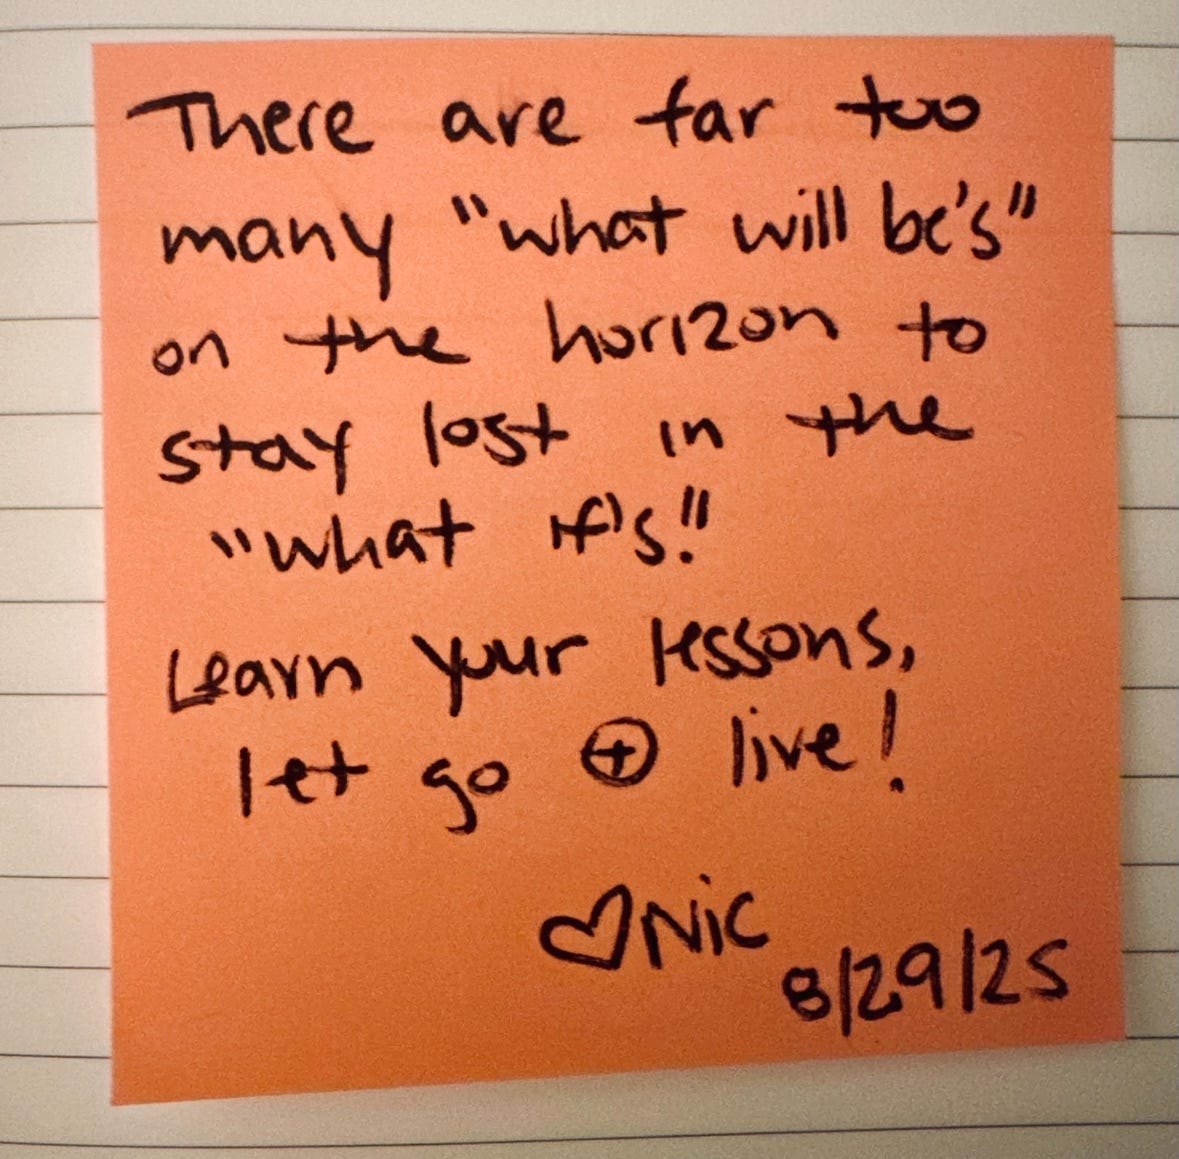 There are far too
many "what will be's"
on the horizon to
stay lost in the
"what if's!"
Learn your lessons,
let go ⊕ live!
♡Nic
8/29/25